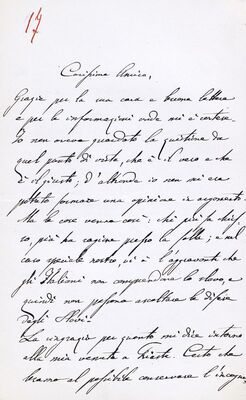 17
Carissimo Amico,
Grazie per la sua cara e buona lettera
e per le informazioni onde mi è cortese.
Io non aveva guardato la questione da
quel punto di vista, che è il vero e che
è il giusto; d'altronde io non mi era
potuto formare una opinione in argomento.
Ma le cose vanno così: chi più fa chias-
so, più ha ragione presso la folla; e nel
caso speciale nostro, vi è l'aggravante che
gli Italiani non comprendono lo slavo, e
quindi non possono ascoltare le difese
degli Slavi.
La ringrazio per quanto mi dice intorno
alla mia venuta a Trieste. Certo che
bramo al possibile conservare l'incogni